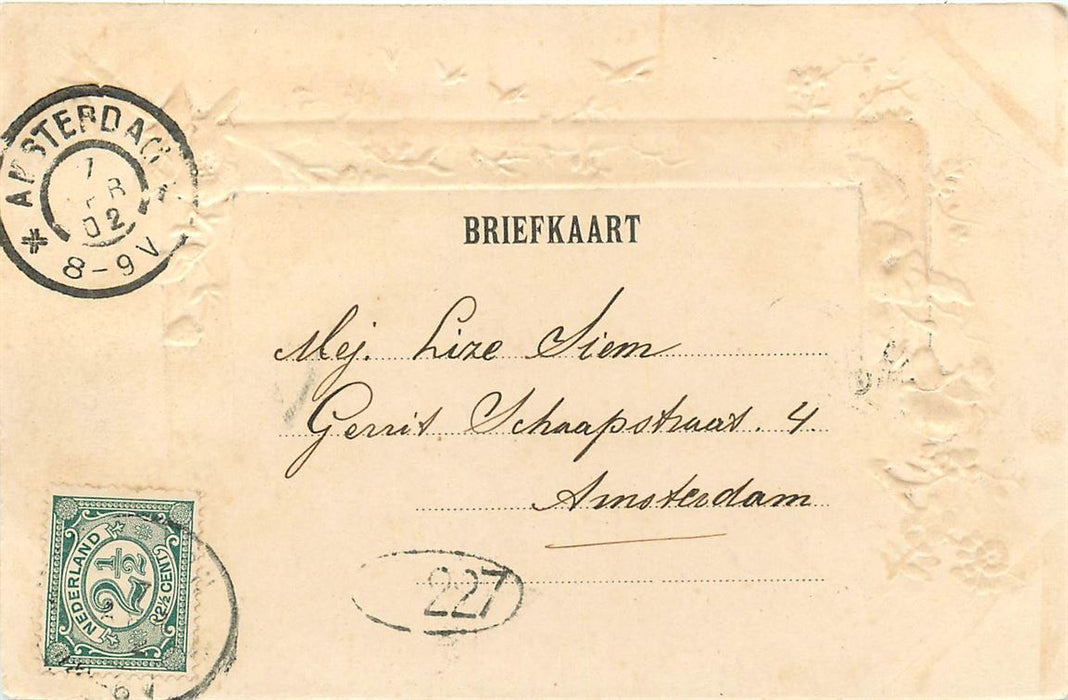 AMSTERDAM
02
8-9 V
BRIEFKAART
Mej. Lize Siem
Gerrit Schaapstraat. 4.
Amsterdam
NEDERLAND
2½
2½ CENT
227